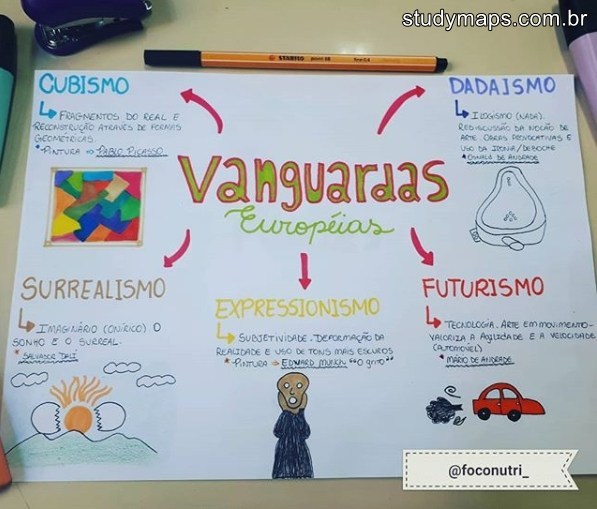 studymaps.com.br
STABILO point 88 fine 0,4
CUBISMO
FRAGMENTOS DO REAL E
RECONSTRUÇÃO ATRAVÉS DE FORMAS
GEOMÉTRICAS.
* PINTURA → PABLO PICASSO
DADAÍSMO
ILOGISMO (NADA).
REDISCUSSÃO DA NOÇÃO DE
ARTE. OBRAS PROVOCATIVAS E
USO DA IRONIA/DEBOCHE
* OSWALD DE ANDRADE
Vanguardas
Européias
SURREALISMO
IMAGINÁRIO (ONÍRICO). O
SONHO E O SURREAL.
* SALVADOR DALÍ
EXPRESSIONISMO
SUBJETIVIDADE. DEFORMAÇÃO DA
REALIDADE E USO DE TONS MAIS ESCUROS
* PINTURA → EDWARD MUNCH "O grito"
FUTURISMO
TECNOLOGIA. ARTE EM MOVIMENTO -
VALORIZA A AGILIDADE E A VELOCIDADE
(AUTOMÓVEL)
* MÁRIO DE ANDRADE
@foconutri_